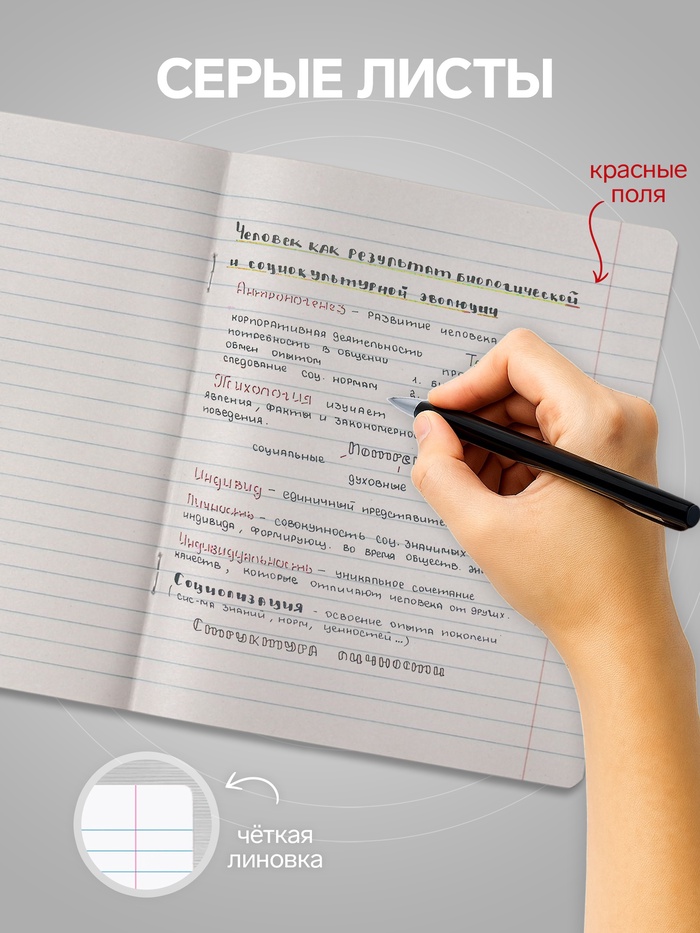 СЕРЫЕ ЛИСТЫ
красные
поля
Человек как результат биологической
и социокультурной эволюции
Антропогенез – развитие человека
корпоративная деятельность
потребность в общении
обмен опытом
следование соц. нормам
1.
2.
Психология изучает
явления, факты и закономерно
поведения.
социальные
духовные
Индивид – единичный представите
Личность – совокупность соц. значимых
индивида, формирующ. во время обществ.
Индивидуальность – уникальное сочетание
качеств, которые отличают человека от других.
Социализация – освоение опыта поколени
(сис-ма знаний, норм, ценностей...)
Структура личности
чёткая
линовка